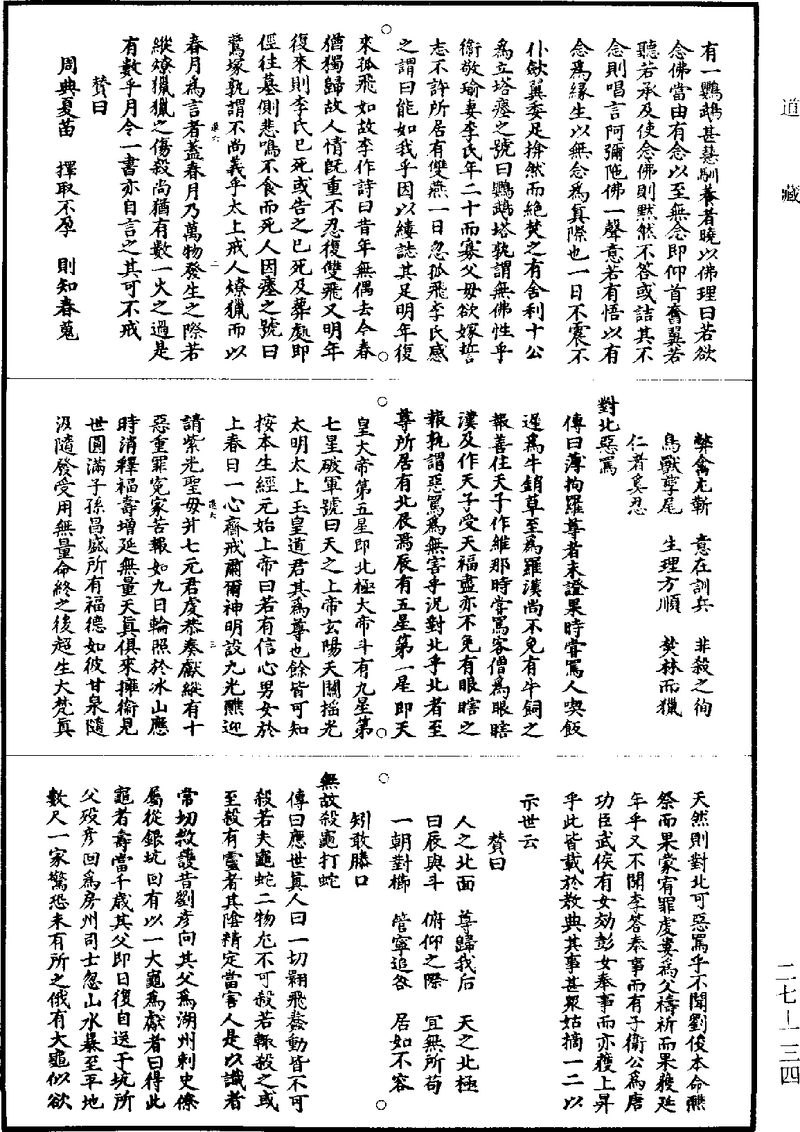 道藏
有一鸚鵡甚慧馴養者曉以佛理曰若欲
念佛當由有念以至無念即仰首奮翼若
聽若承及使念佛則默然不答或詰其不
念則唱言阿彌陁佛一聲意若有悟以有
念為緣生以無念為真際也一日不震不
仆斂翼委足揜然而絕焚之有舍利十公
為立塔瘞之號曰鸚鵡塔孰謂無佛性乎
衛敬瑜妻李氏年二十而寡父母欲嫁誓
志不許所居有雙燕一日忽孤飛李氏感
之謂曰能如我乎因以縷誌其足明年復
來孤飛如故李作詩曰昔年無偶去今春
猶獨歸故人情既重不忍復雙飛又明年
復來則李氏已死或告之已死及葬處即
徑往墓側悲鳴不食而死人因瘞之號曰
鷰塚孰謂不尚義乎太上戒人燎獵而以
春月為言者蓋春月乃萬物發生之際若
縱燎獵獵之傷殺尚猶有數一火之過是
有數乎月令一書亦自言之其可不戒
贊曰
周典夏苗 擇取不孕 則知春蒐
弊禽尤靳 意在訓兵 非殺之徇
鳥獸孳尾 生理方順 焚林而獵
仁者奚忍
對北惡罵
傳曰薄拘羅尊者未證果時嘗罵人喫飯
遲為牛銷草至為羅漢尚不免有牛飼之
報善住天子作維那時嘗罵客僧為眼瞎
漢及作天子受天福盡亦不免有眼瞎之
報孰謂惡罵為無害乎況對北乎北者至
尊所居有北辰焉辰有五星第一星即天
皇大帝第五星即北極大帝斗有九星第
七星破軍號曰天之上帝玄陽天關搖光
太明太上玉皇道君其為尊也餘皆可知
按本生經元始上帝曰若有信心男女於
上春日一心齋戒爾爾神明設九光醮迎
請紫光聖母并七元君虔恭奏獻縱有十
惡重罪冤家苦報如九日輪照於冰山應
時消釋福壽增延無量天真俱來擁衛見
世圓滿子孫昌盛所有福德如彼甘泉隨
汲隨發受用無量命終之後超生大梵真
天然則對北可惡罵乎不聞劉俊本命醮
祭而果蒙宥罪虔婁為父禱祈而果獲延
年乎又不聞李答奉事而有子衛公為唐
功臣武侯有女効彭女奉事而亦獲上昇
乎此皆載於教典其事甚衆姑摘一二以
示世云
贊曰
人之北面 尊歸我后 天之北極
曰辰與斗 俯仰之際 宜無所苟
一朝對櫛 管寧追咎 居如不容
矧敢勝口
無故殺龜打蛇
傳曰應世真人曰一切翾飛蠢動皆不可
殺若夫龜蛇二物尤不可殺若輒殺之或
至殺有靈者其陰精定當害人是以識者
常切救護昔劉彥向其父為湖州刺史僚
屬從銀坑回有以一大龜為獻者曰得此
龜者壽當千歲其父即日復自送于坑所
父歿彥回為房州司士忽山水暴至平地
數尺一家驚恐未有所之俄有大龜似欲
二七—一三四